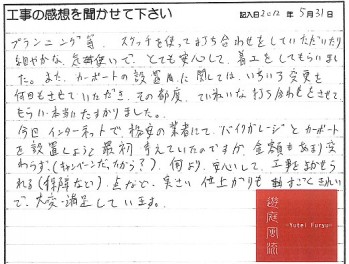 工事の感想を聞かせて下さい
記入日2012年5月31日
プランニング等、スケッチを使って打ち合わせをしていただいたり
細やかな、気遣いで、とても安心して、着工をしてもらいまし
た。また、カーポートの設置に関しては、いろいろ変更を
何回もさせていただき、その都度、ていねいな打ち合わせをさせて
もらい本当にたすかりました。
今回インターネットで、格安の業者にて、バイクガレージとカーポート
を設置しようと最初考えていたのですが、金額もあまり変
わらず(キャンペーンだったから?)、何より、安心して、工事をまかせら
れる(保障など)点など、実さい仕上がりもすごくきれい
で、大変満足しています。
遊庭風流
-Yutei Furyu-